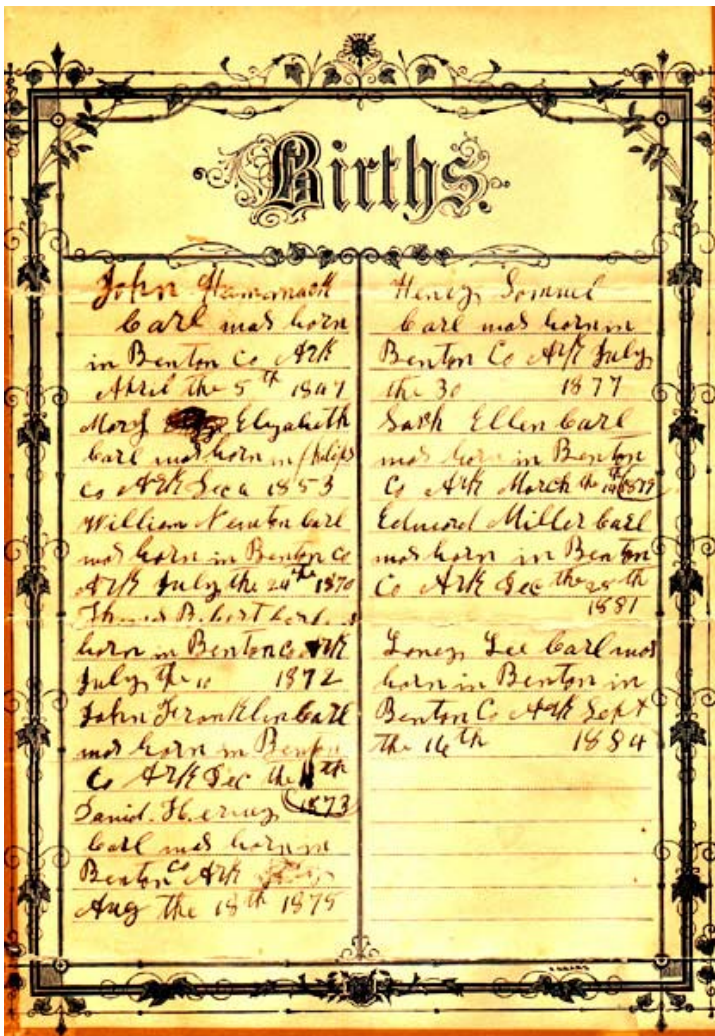 Births.
John Hammack
Carl was born
in Benton Co Ark
April the 5th 1847
Mary Elizabeth
Carl was born in Philips
Co Ark Dec 6 1853
William Newton Carl
was born in Benton Co
Ark July the 24the 1870
Robert Carl
born in Benton Co Ark
July the 10 1872
John Franklin Carl
was born in Benton
Co Ark Dec the th
1873
Daniel Henry
Carl was born in
Benton Co Ark
Aug the 18th 1875
Henry Samuel
Carl was born in
Benton Co Ark July
the 30 1877
Sarh Ellen Carl
was born in Benton
Co Ark March the 1879
Edward Miller Carl
was born in Benton
Co Ark Dec the 28th
1881
Loney Lee Carl was
born in Benton in
Benton Co Ark Sept
the 16th 1884